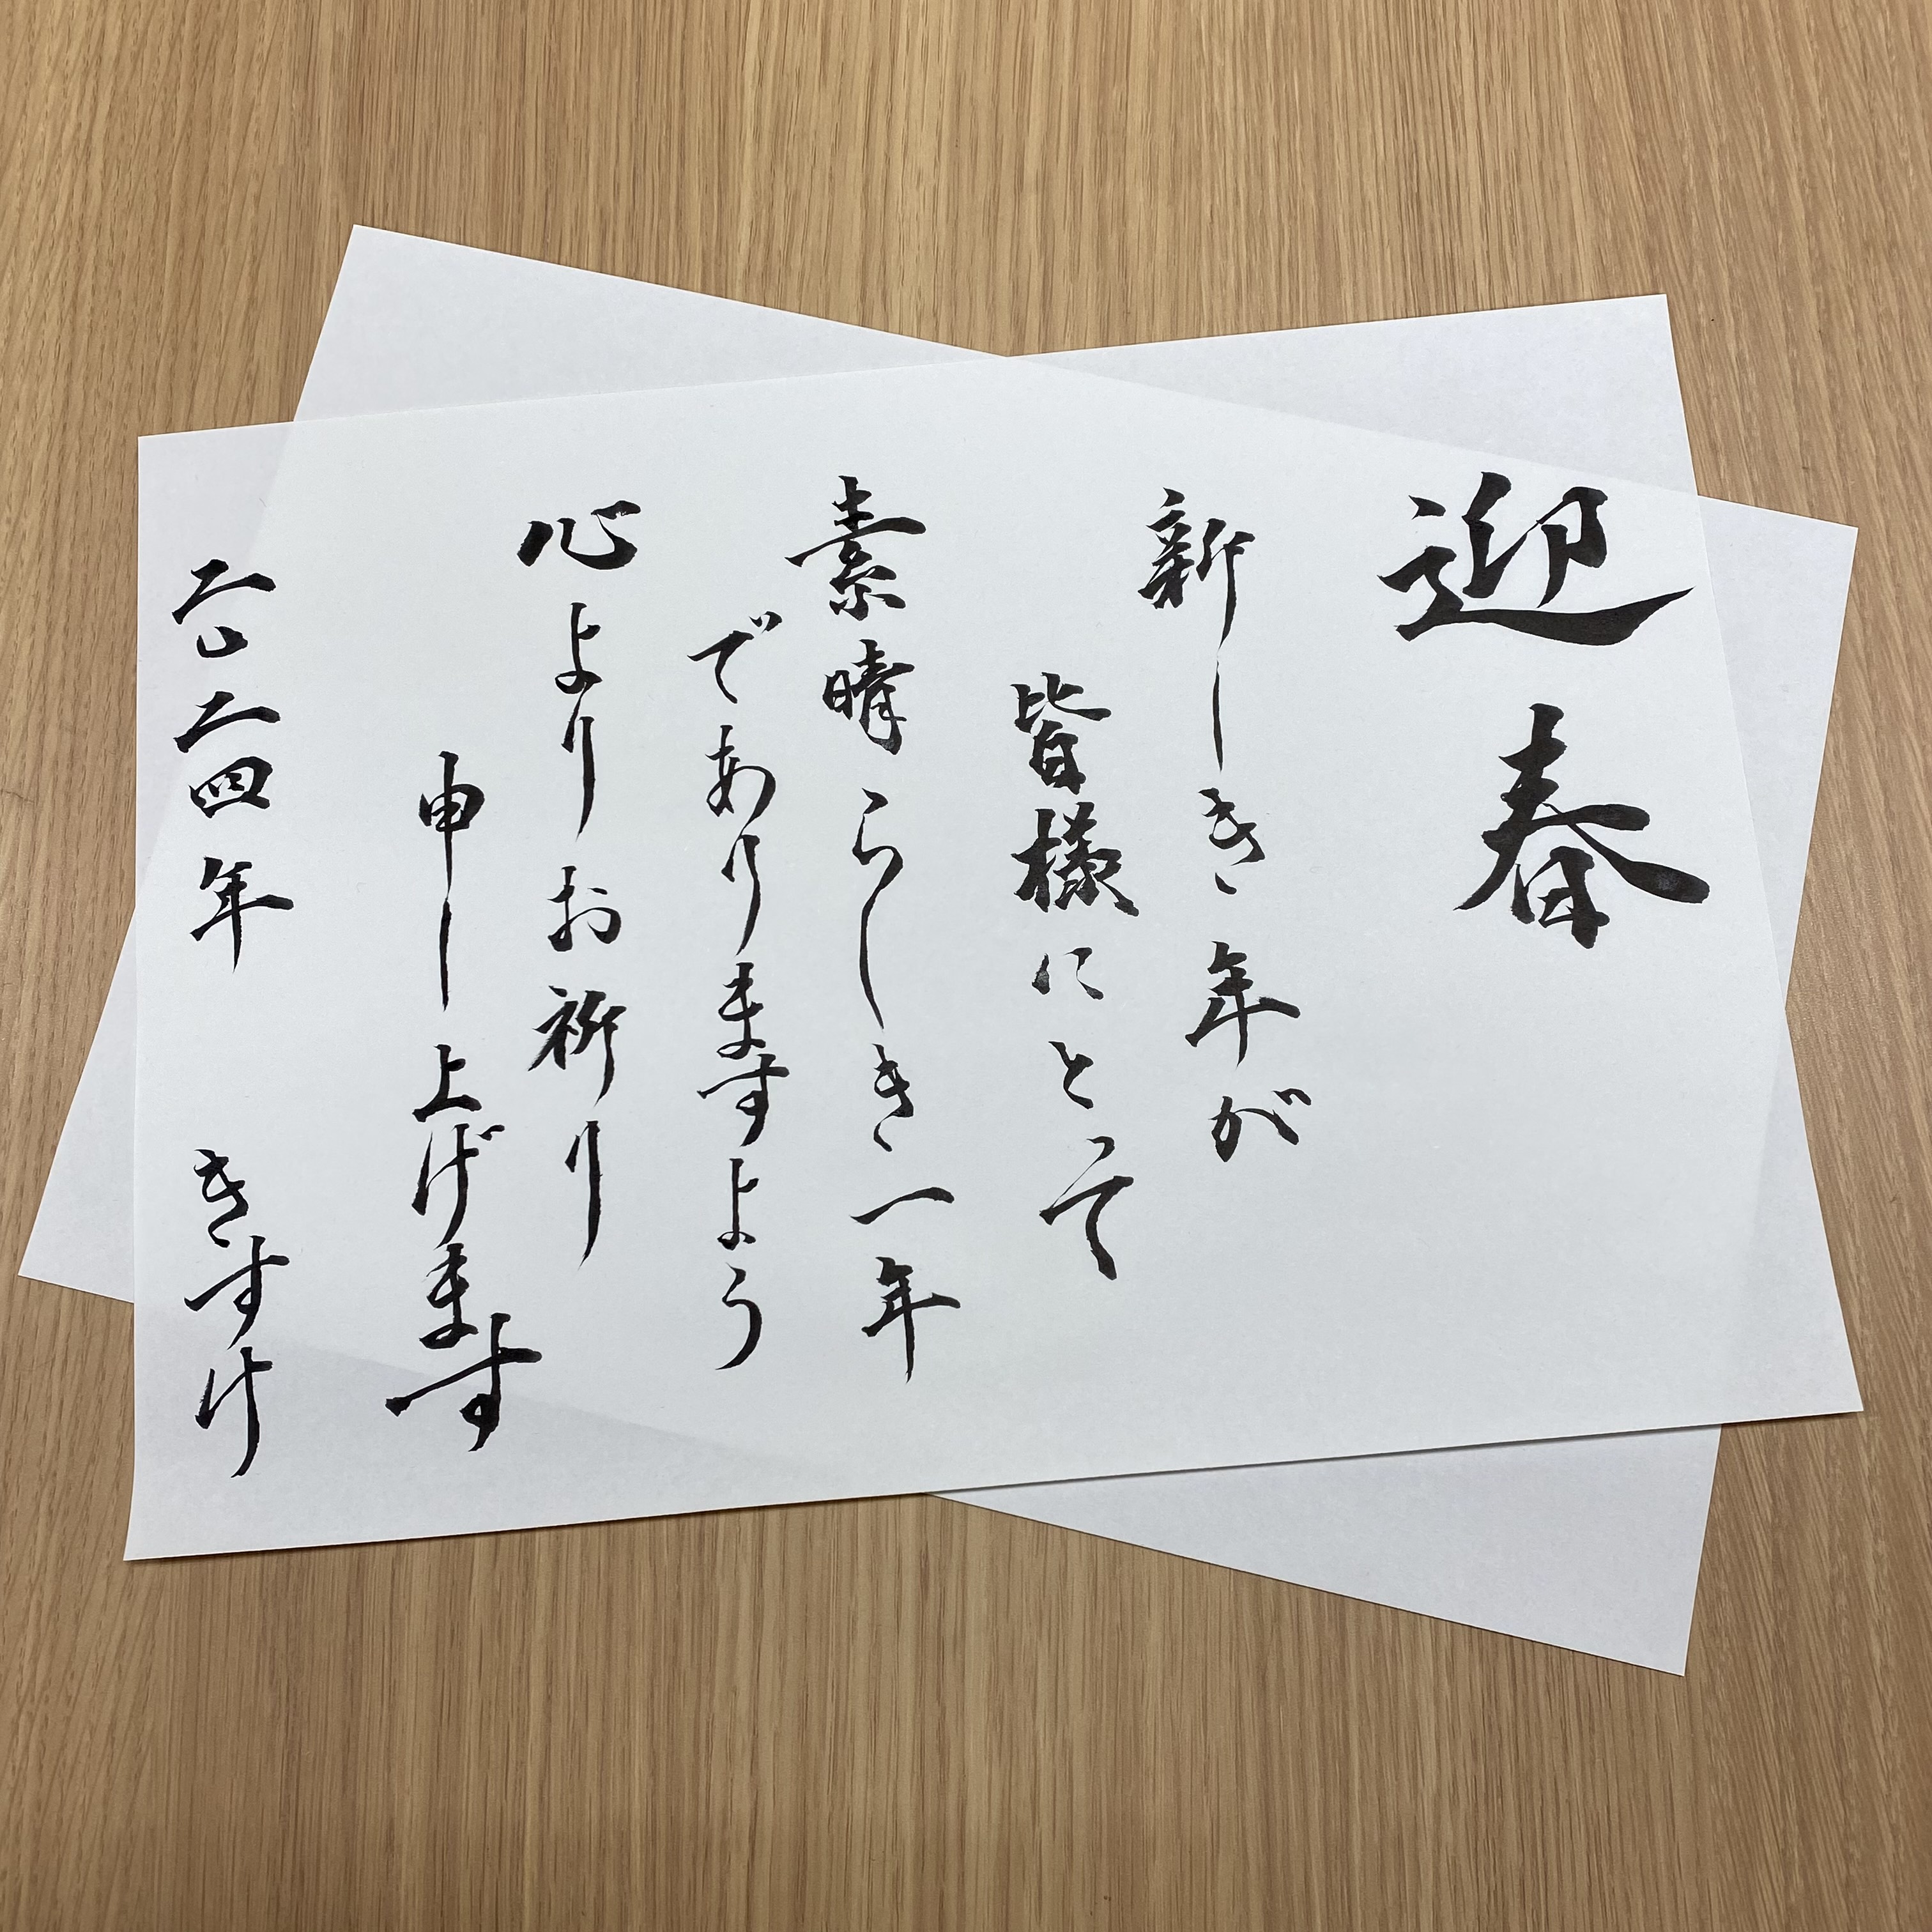 迎春
新しき年が
皆様にとって
素晴らしき一年
でありますよう
心よりお祈り
申し上げます
二〇二四年 きすけ